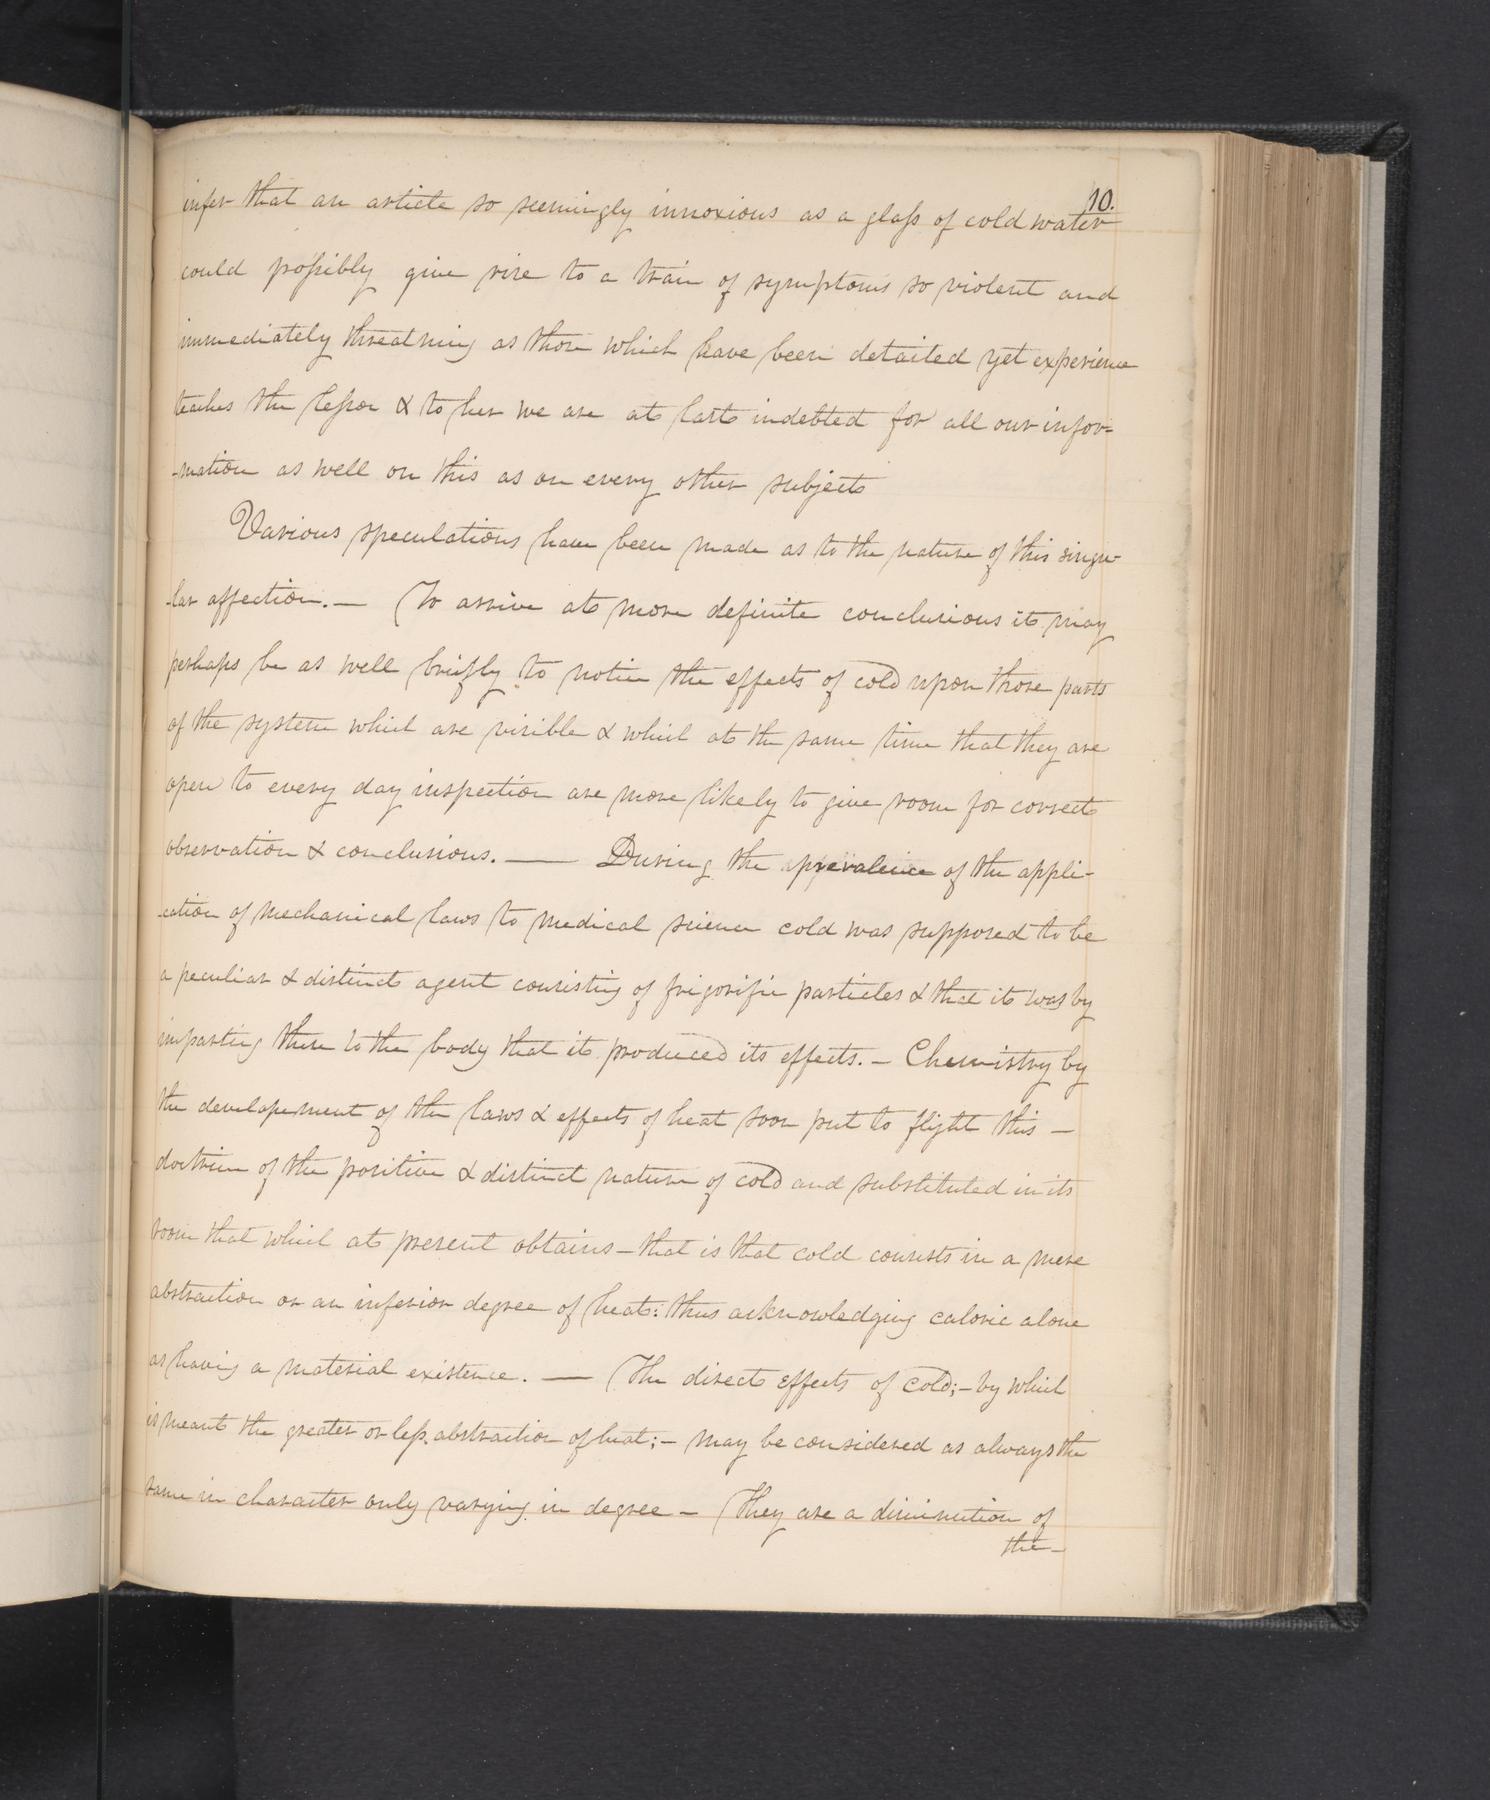 10.
infer that an article so seemingly innoxious as a glass of cold water
could possibly give rise to a train of symptoms so violent and
immediately threatning as those which have been detailed yet experience
teaches the lesson & to her we are at last indebted for all our infor=
-mation as well on this as on every other subject
Various speculations have been made as to the nature of this singu-
-lar affection. — To arrive at more definite conclusions it may
perhaps be as well briefly to notice the effects of cold upon those parts
of the system which are visible & which at the same time that they are
open to every day inspection are more likely to give room for correct
observation & conclusions. — During the prevalence of the appli-
-cation of mechanical laws to medical science cold was supposed to be
a peculiar & distinct agent consisting of frigorific particles & that it was by
imparting these to the body that it produced its effects. — Chemistry by
the developement of the laws & effects of heat soon put to flight this —
doctrine of the positive & distinct nature of cold and substituted in its
room that which at present obtains — that is that cold consists in a mere
abstraction or an inferior degree of heat: thus acknowledging caloric alone
as having a material existence. — The direct effects of cold; — by which
is meant the greater or less abstraction of heat; — may be considered as always the
same in character only varying in degree — They are a diminution of
the —